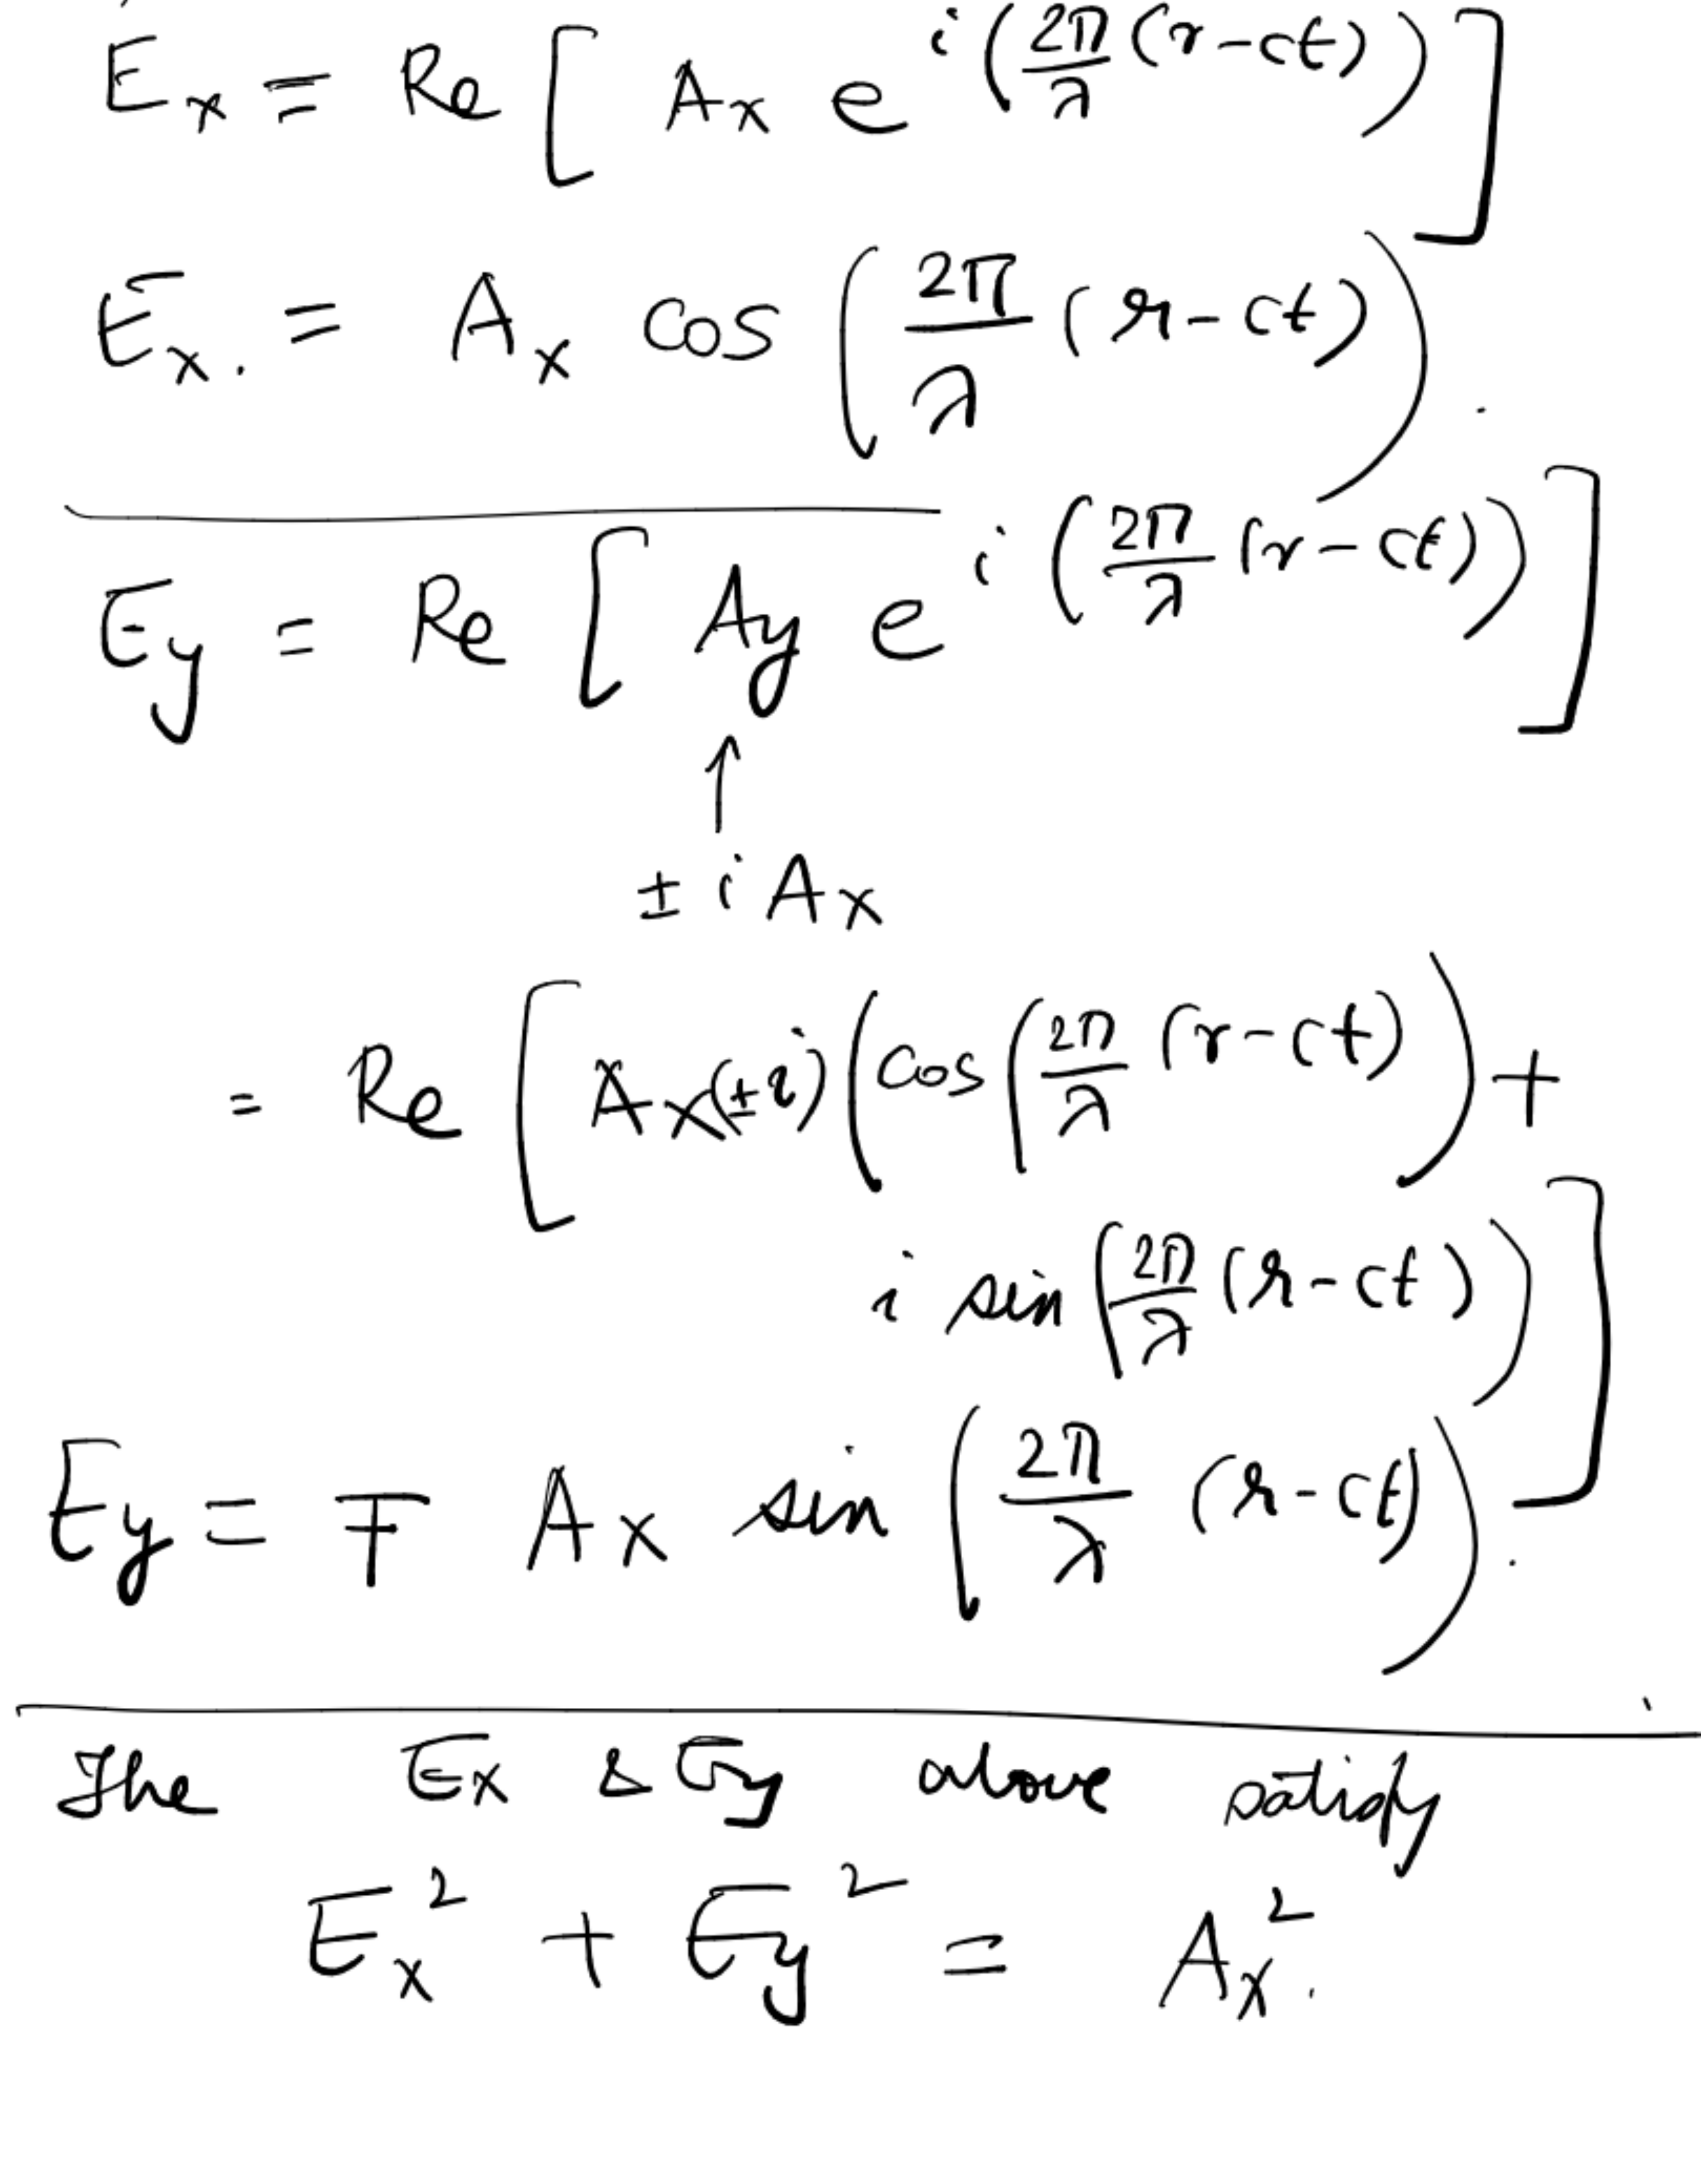 Ex = Re [ Ax e^{i(2π/λ (r-ct))} ]
Ex. = Ax cos (2π/λ (r-ct)).
Ey = Re [ Ay e^{i(2π/λ (r-ct))} ]
↑
± i Ax
= Re [ Ax(±i) (cos (2π/λ (r-ct)) +
i sin (2π/λ (r-ct)) ) ]
Ey = ∓ Ax sin (2π/λ (r-ct)).
The Ex & Ey above satisfy
Ex² + Ey² = Ax².